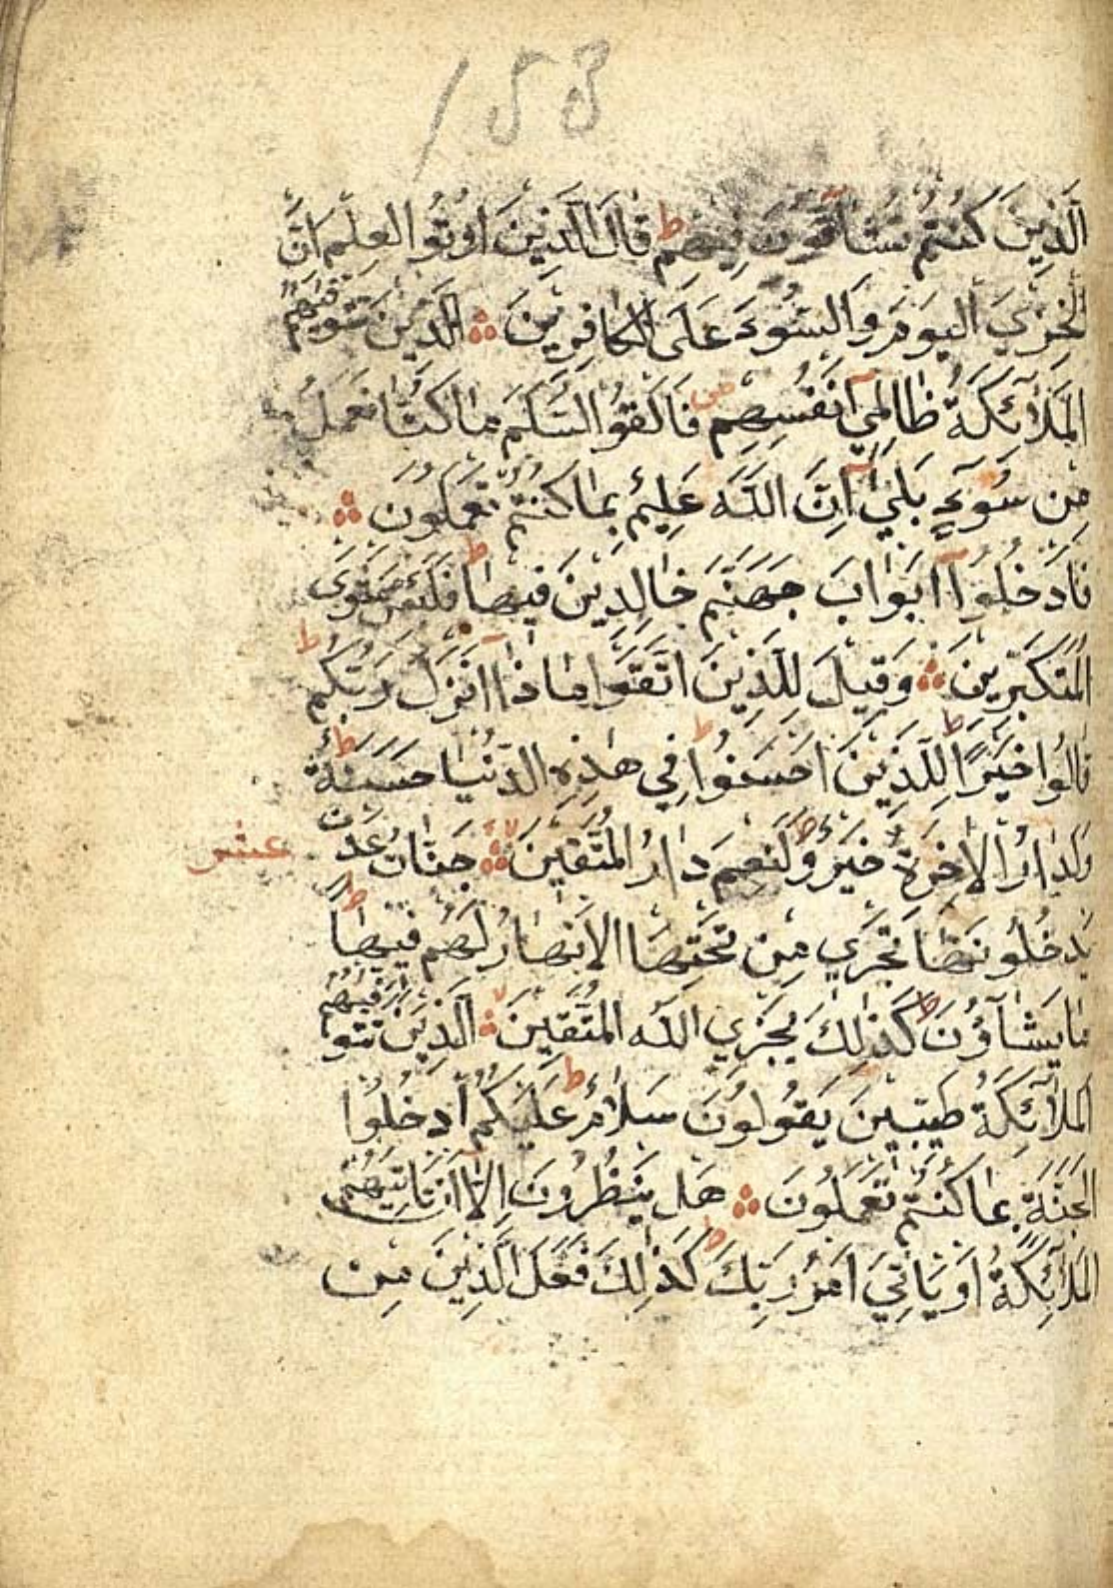 158
الَّذِينَ كُنتُمْ تُشَاقُّونَ فِيهِمْ ط قَالَ الَّذِينَ اُوتُوا العِلْمَ اِنَّ
الْخِزْيَ اليَوْمَ وَالسُّوءَ عَلَى الكَافِرِينَ الَّذِينَ تَتَوَفّٰيهُمُ
المَلَآئِكَةُ ظَالِمِيٓ اَنْفُسِهِمْ ص فَاَلْقَوُا السَّلَمَ مَا كُنَّا نَعْمَلُ
مِن سُوٓءٍ بَلٰيٓ اِنَّ اللّٰهَ عَلِيمٌ بِمَا كُنْتُمْ تَعْمَلُونَ
فَادْخُلُوٓا اَبْوَابَ جَهَنَّمَ خَالِدِينَ فِيهَا ط فَلَبِئْسَ مَثْوَى
المُتَكَبِّرِينَ وَقِيلَ لِلَّذِينَ اتَّقَوا مَاذَٓا اَنْزَلَ رَبُّكُمْ ط
قَالُوا خَيْرًا ط لِلَّذِينَ اَحْسَنُوا ط فِي هٰذِهِ الدُّنْيَا حَسَنَةٌ ط
وَلَدَارُ الاٰخِرَةِ خَيْرٌ ط وَلَنِعْمَ دَارُ المُتَّقِينَ لا جَنَّاتُ عَدْنٍ
عشر
يَدْخُلُونَهَا تَجْرِي مِن تَحْتِهَا الاَنْهَارُ لَهُمْ فِيهَا ط
مَا يَشَآؤُنَ ط كَذٰلِكَ يَجْزِي اللّٰهُ المُتَّقِينَ لا الَّذِينَ تَتَوَفّٰيهُمُ
المَلَآئِكَةُ طَيِّبِينَ يَقُولُونَ سَلَامٌ عَلَيْكُمُ ط ادْخُلُوا
الجَنَّةَ بِمَا كُنْتُمْ تَعْمَلُونَ هَلْ يَنْظُرُونَ اِلَّآ اَنْ تَاْتِيَهُمُ
المَلَآئِكَةُ اَوْ يَاْتِيَ اَمْرُ رَبِّكَ ط كَذٰلِكَ فَعَلَ الَّذِينَ مِن